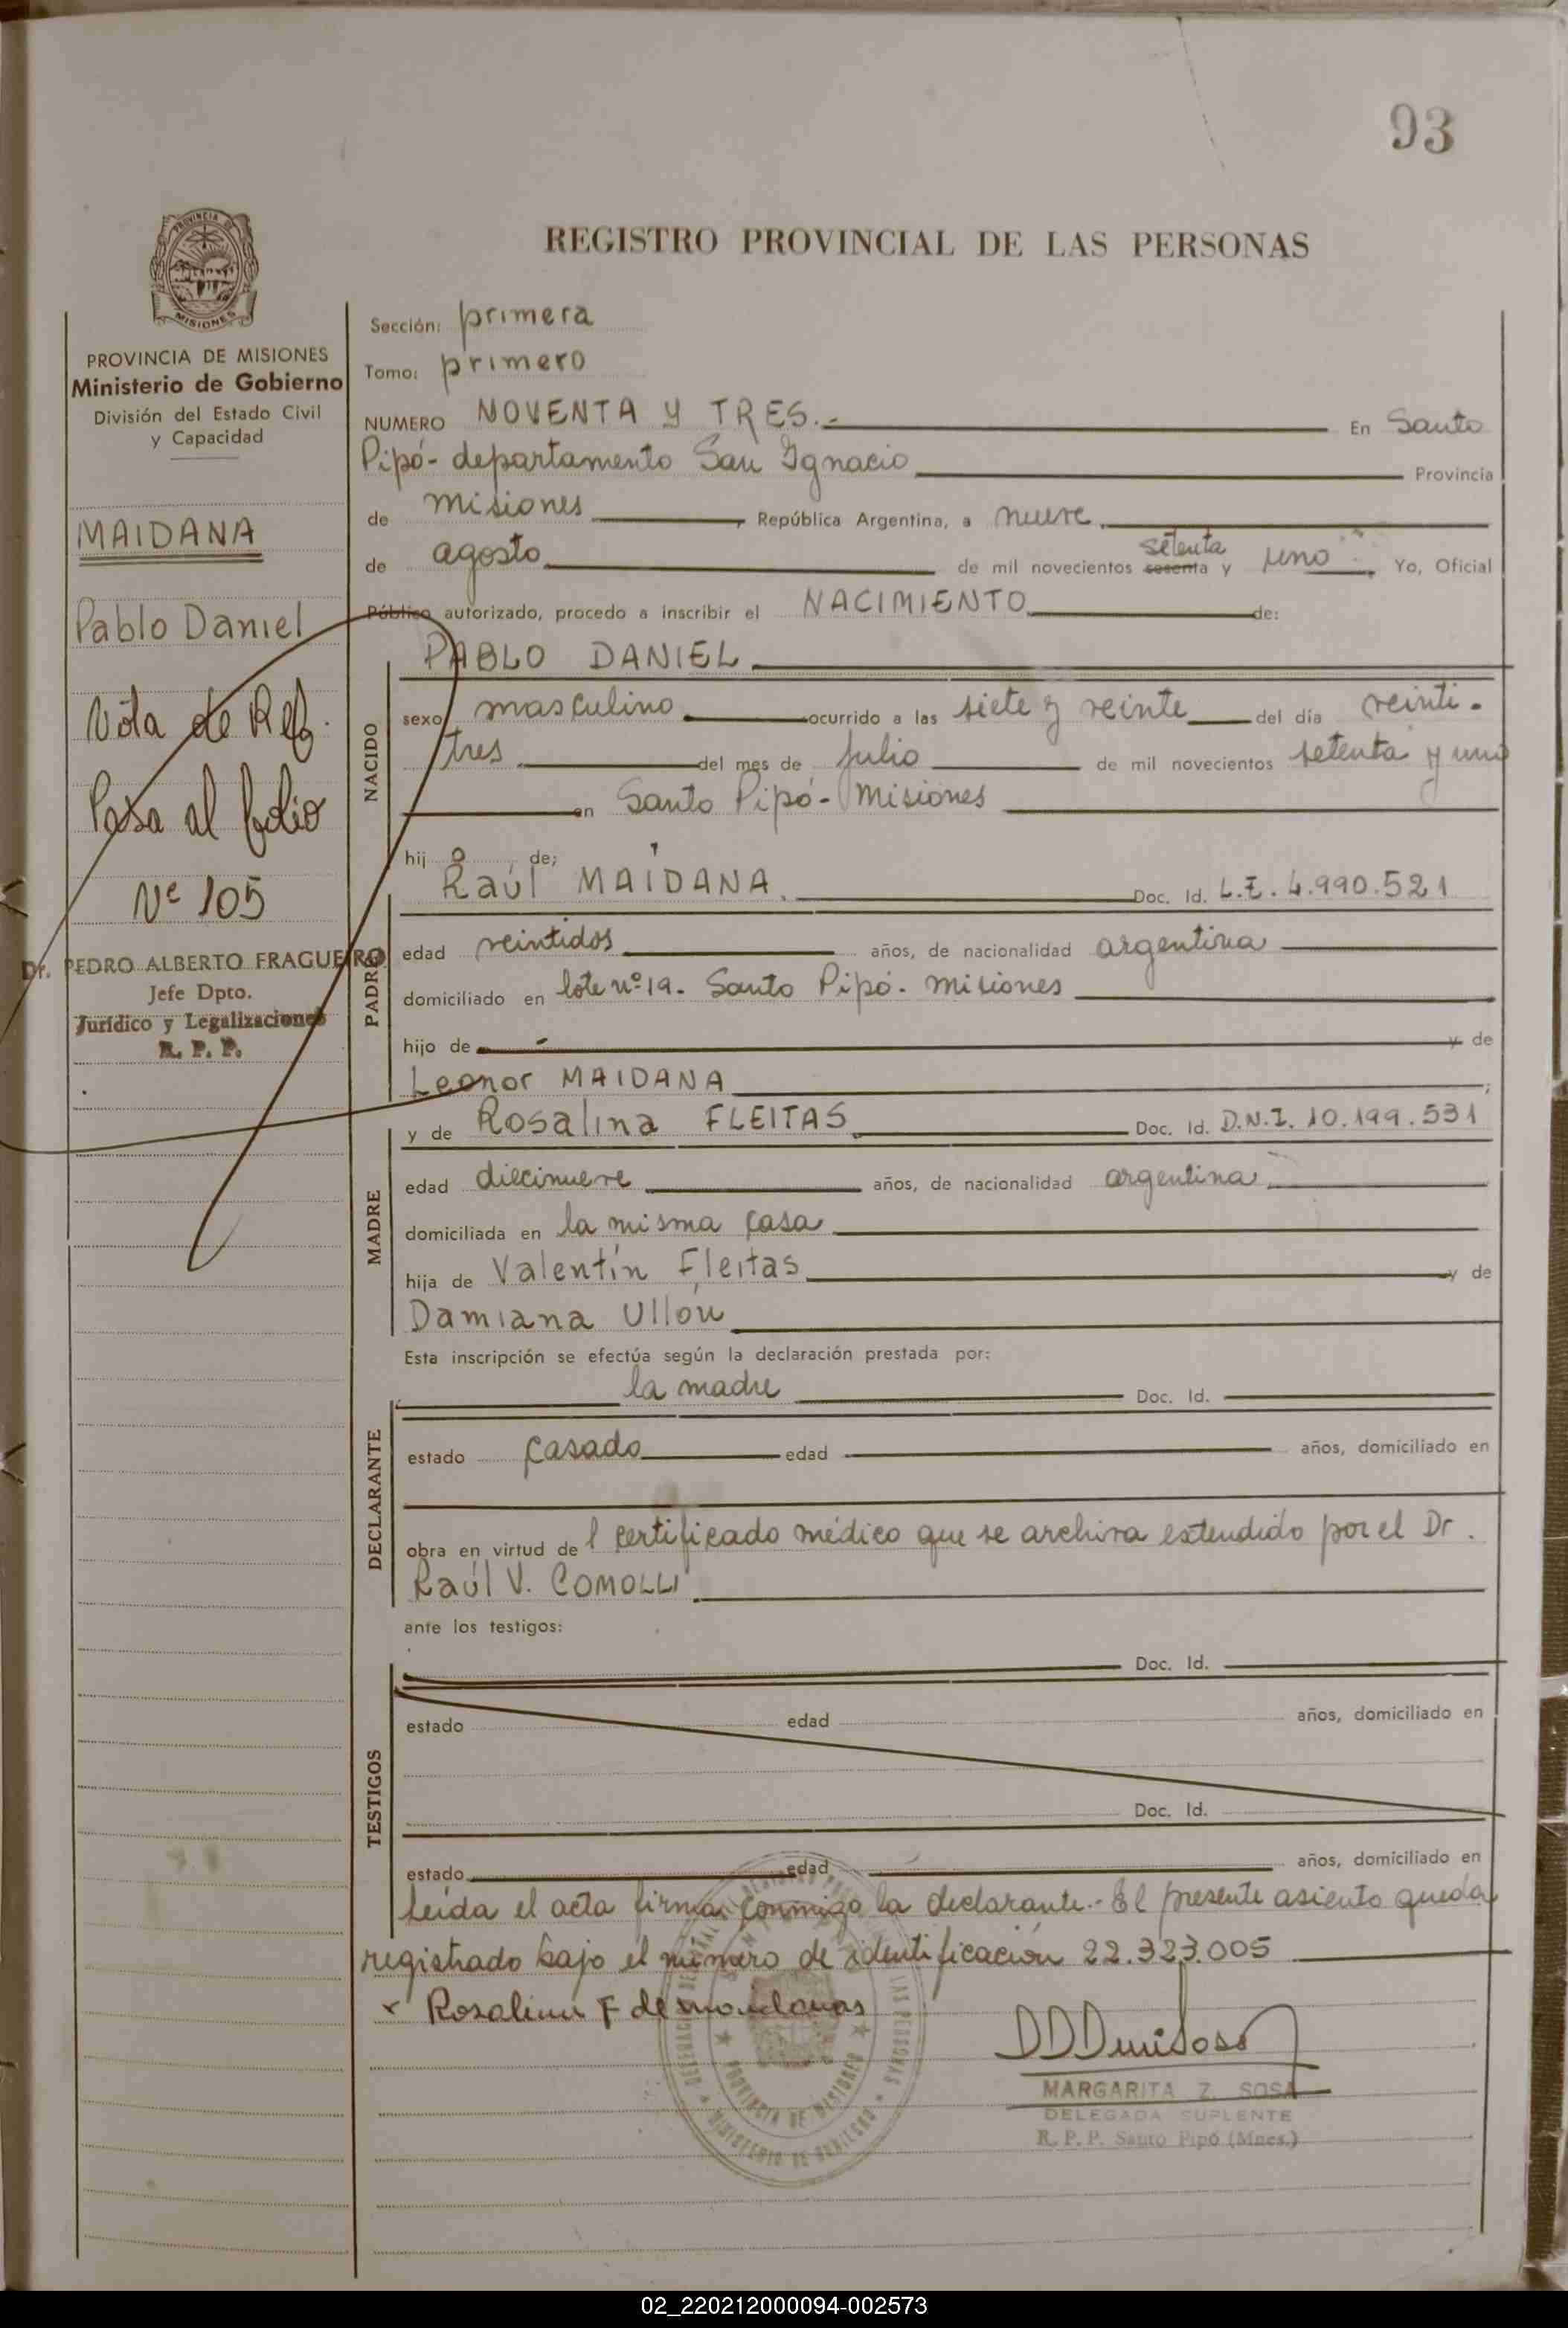 93
REGISTRO PROVINCIAL DE LAS PERSONAS
PROVINCIA DE MISIONES
Ministerio de Gobierno
División del Estado Civil
y Capacidad
MAIDANA
Pablo Daniel
Nota de Ref.
Pasa al folio
Nº 105
Dr. PEDRO ALBERTO FRAGUEIRO
Jefe Dpto.
Jurídico y Legalizaciones
R. P. P.
Sección: primera
Tomo: primero
NUMERO NOVENTA Y TRES.- En Santo
Pipó- departamento San Ignacio Provincia
de Misiones, República Argentina, a nueve
de agosto de mil novecientos sesenta setenta y uno. Yo, Oficial
Público autorizado, procedo a inscribir el NACIMIENTO de:
NACIDO
PABLO DANIEL
sexo masculino ocurrido a las siete y veinte del día veinti-
tres del mes de julio de mil novecientos setenta y uno
en Santo Pipó- Misiones
hijo de;
PADRE
Raúl MAIDANA. Doc. Id. L.E. 4.990.521
edad veintidos años, de nacionalidad argentina
domiciliado en lote nº 19. Santo Pipó. Misiones
hijo de - y de
Leonor MAIDANA;
MADRE
y de Rosalina FLEITAS Doc. Id. D.N.I. 10.199.531
edad diecinueve años, de nacionalidad argentina
domiciliada en la misma casa
hija de Valentín Fleitas y de
Damiana Ullón
Esta inscripción se efectúa según la declaración prestada por:
DECLARANTE
la madre Doc. Id.
estado casado edad años, domiciliado en
obra en virtud del certificado médico que se archiva extendido por el Dr.
Raúl V. COMOLLI
ante los testigos:
TESTIGOS
Doc. Id.
estado edad años, domiciliado en
Doc. Id.
estado edad años, domiciliado en
Leída el acta firma conmigo la declarante.- El presente asiento queda
registrado bajo el número de identificación 22.323.005
x Rosalina F de
MARGARITA Z. SOSA
DELEGADA SUPLENTE
R. P. P. Santo Pipó (Mnes.)
PROVINCIA DE MISIONES
MINISTERIO DE GOBIERNO
02_220212000094-002573